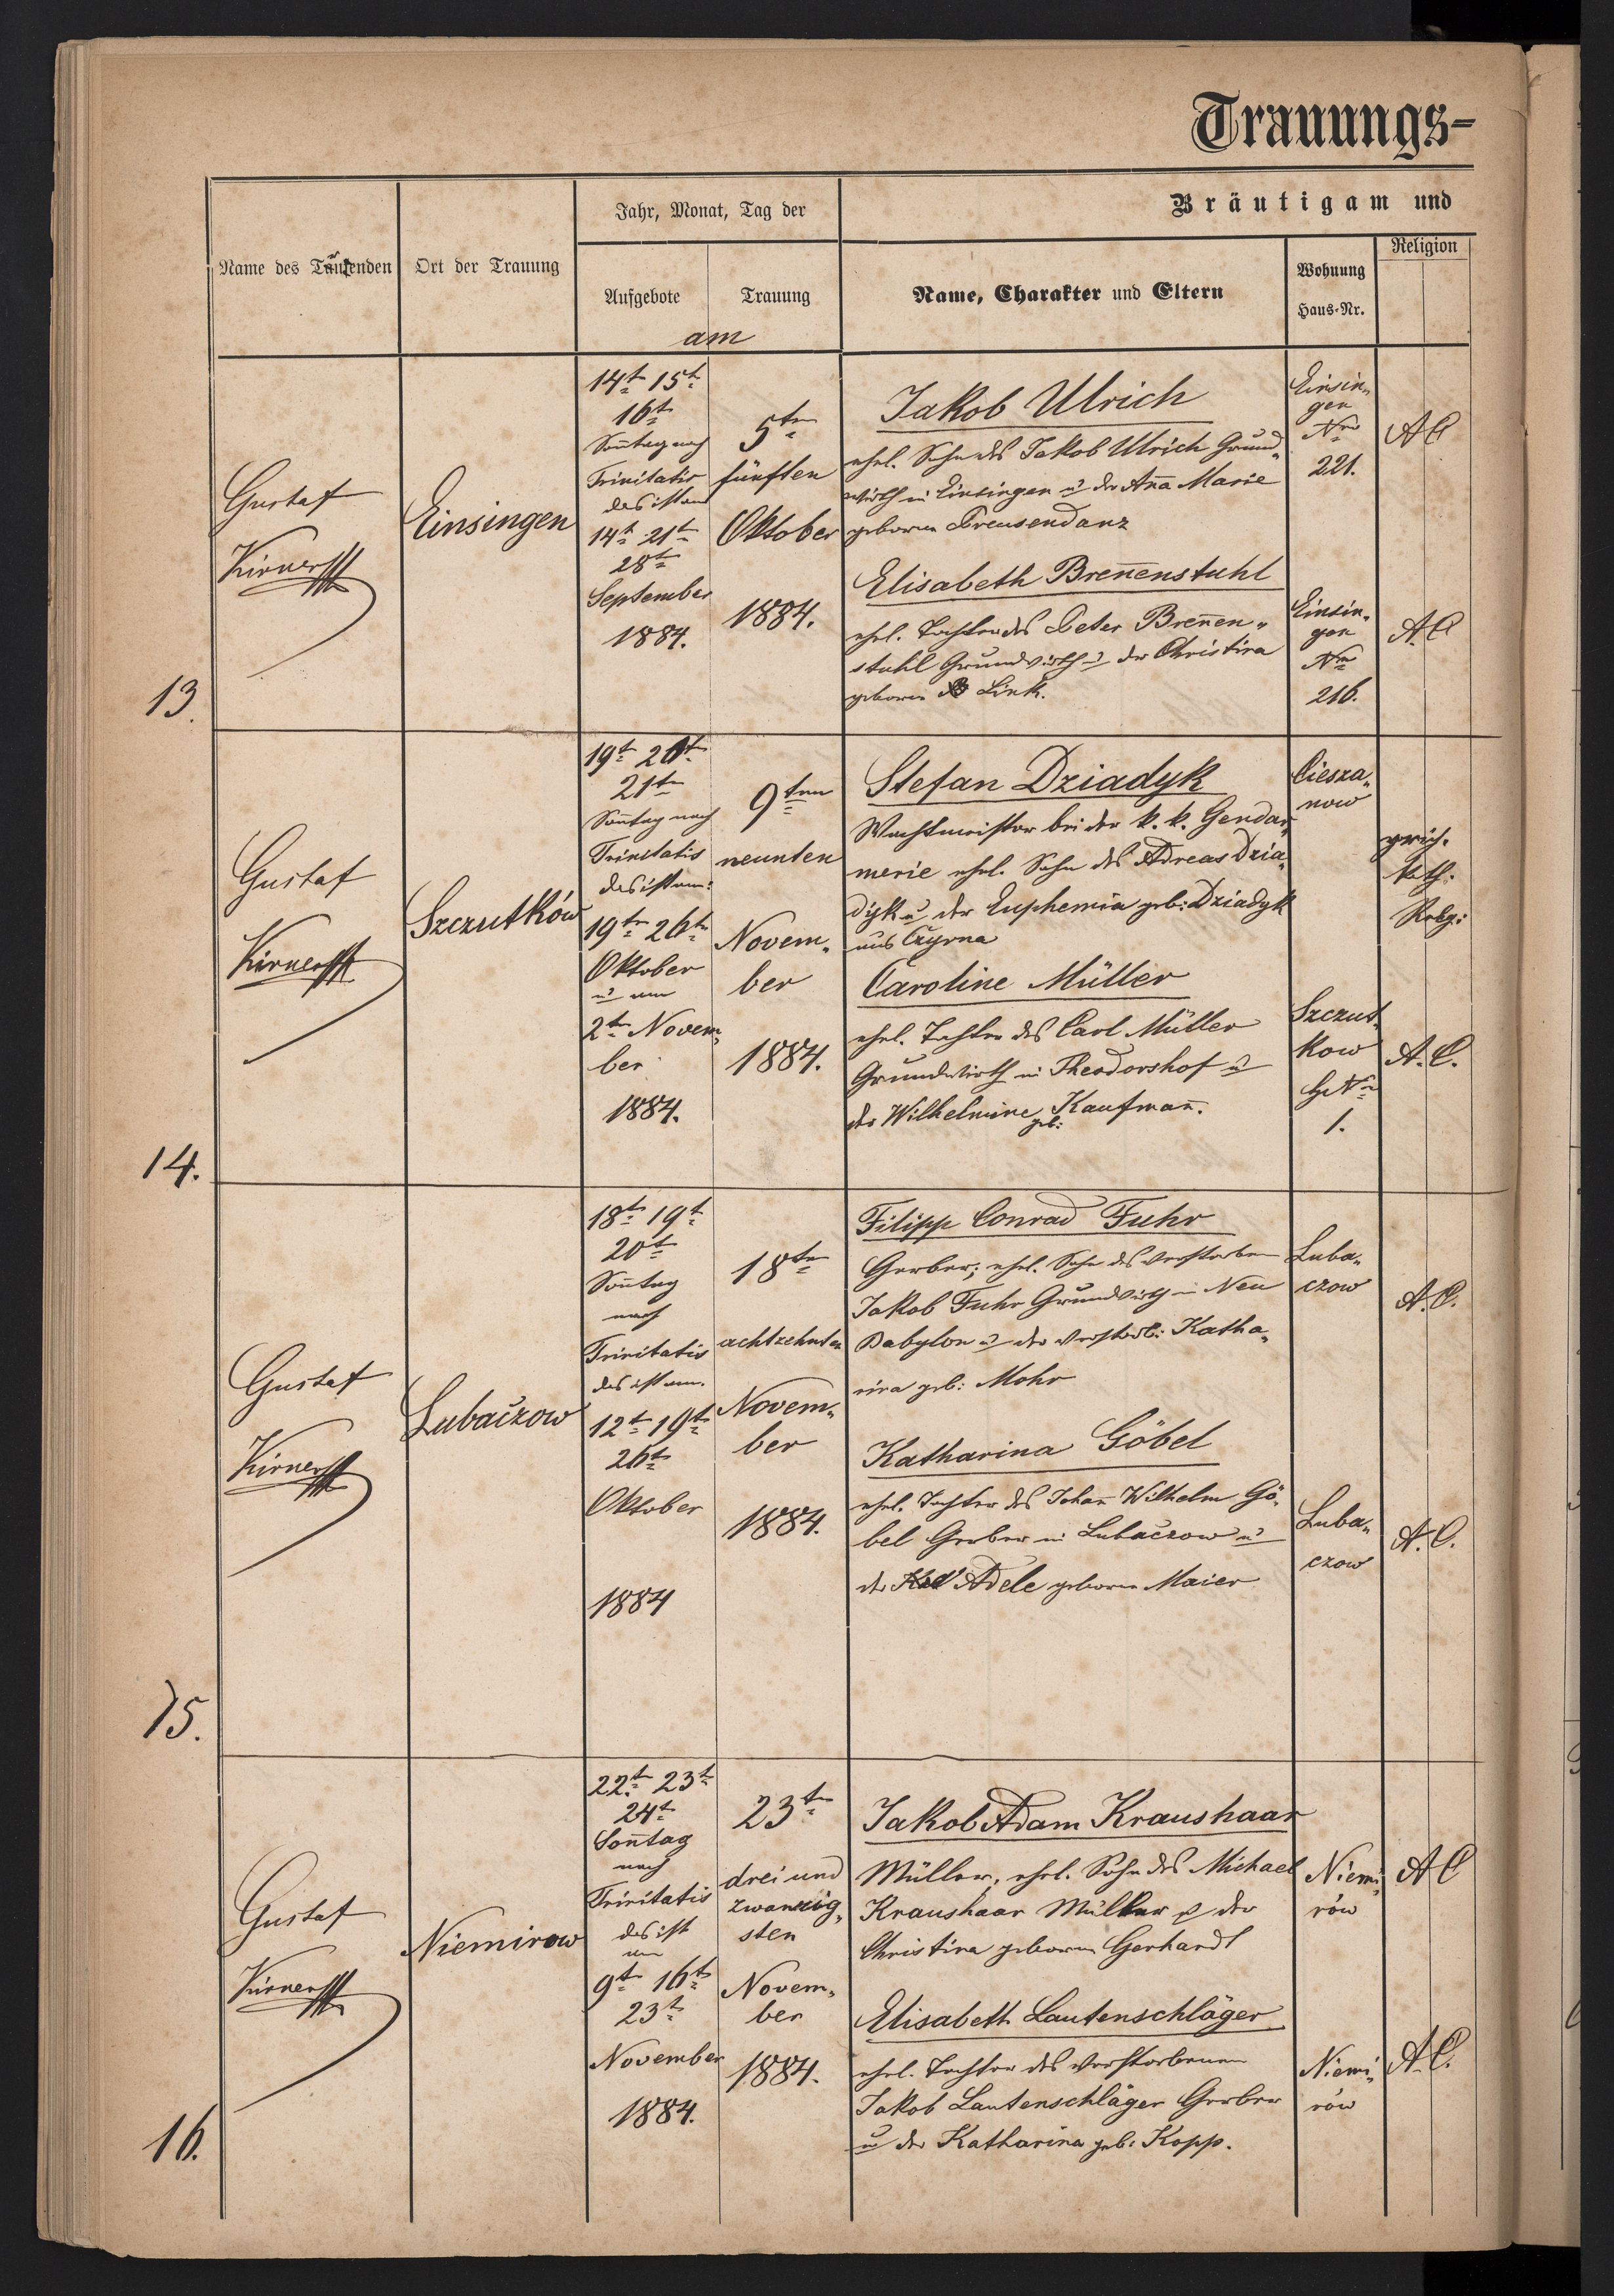 Trauungs-
Name des Trauenden
Ort der Trauung
Jahr, Monat, Tag der
Aufgebote
Trauung
am
Bräutigam und
Name, Charakter und Eltern
Wohnung
Haus-Nr.
Religion
13.
Gustaf
Kirner
Einsingen
14t 15t
16t
Son̄tag nach
Trinitatis
das ist am
14t 21t
28t
September
1884.
5ten
fünften
Oktober
1884.
Jakob Ulrich
ehel. Sohn des Jakob Ulrich Grund„
wirth in Einsingen u der An̄a Marie
geboren Preusendanz
Einsin„
gen
Nro
221.
A C
Elisabeth Bren̄enstuhl
ehel. Tochter des Peter Bren̄en„
stuhl Grundwirth u der Christina
geboren Link.
Einsin„
gen
Nro
216.
A. C
14.
Gustaf
Kirner
Szczutków
19t 20t
21t
Son̄tag nach
Trinitatis
das ist am:
19t 26t
Oktober
u am
2t Novem„
ber
1884.
9ten
neunten
Novem„
ber
1884.
Stefan Dziadyk
Wachtmeister bei der k. k. Gendar„
merie ehel. Sohn des Adreas Dzia„
dyk u der Euphemia geb: Dziadyk
aus Czyrna
Ciesza„
now
griech.
kath.
Relig:
Caroline Müller
ehel. Tochter des Carl Müller
Grundwirth in Theodorshof u
der Wilhelmine geb: Kaufman̄.
Szczut„
kow
HNro
1.
A. C.
15.
Gustaf
Kirner
Lubaczow
18t 19t
20t
Son̄tag
nach
Trinitatis
das ist am.
12t 19t
26t
Oktober
1884
18ten
achtzehnten
Novem„
ber
1884.
Filipp Conrad Fuhr
Gerber; ehel. Sohn des verstorben
Jakob Fuhr Grundwirth in Neu
Babylon u der verstorb: Katha„
rina geb: Mohr
Luba„
czow
A. C.
Katharina Göbel
ehel. Tochter des Johan̄ Wilhelm Gö„
bel Gerber in Lubaczow u
der Adele geboren Maier
Luba„
czow
A. C.
16.
Gustaf
Kirner
Niemirow
22t 23t
24t
Son̄tag
nach
Trinitatis
das ist
am
9t 16t
23t
November
1884.
23t
drei und
zwanzig„
sten
Novem„
ber
1884.
Jakob Adam Kraushaar
Müller, ehel. Sohn des Michael
Kraushaar Müller u der
Christina geboren Gerhardt
Niemi„
rów
A C
Elisabeth Lautenschläger
ehel. Tochter des verstorbenen
Jakob Lautenschläger Gerber
u der Katharina geb: Kopp.
Niemi„
rów
A. C.